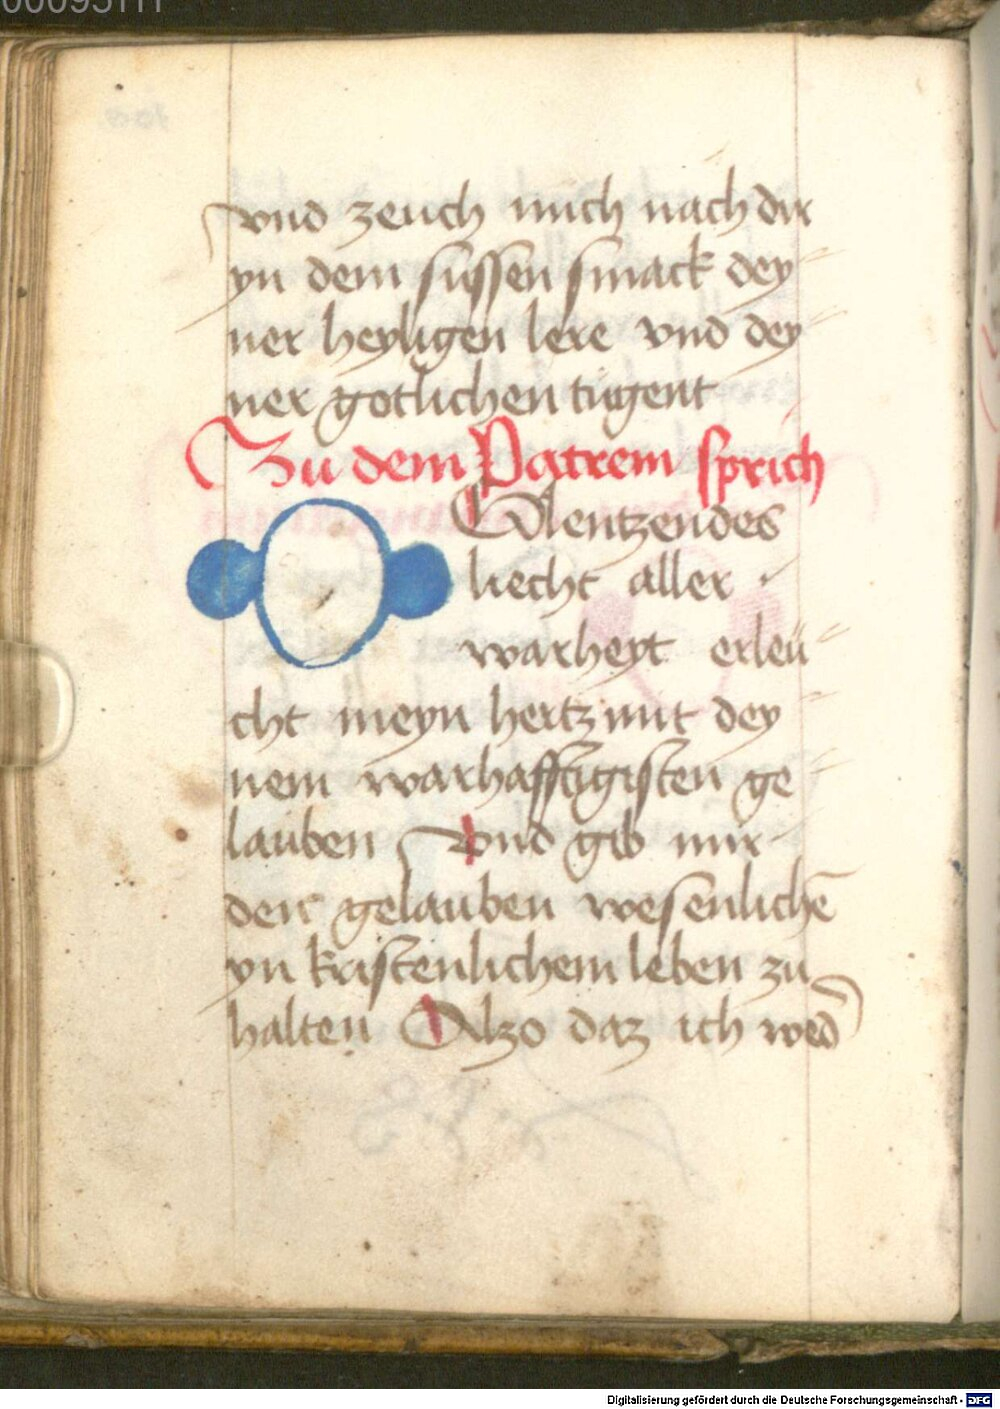 00095111
vnd zeuch mich nach dir
yn dem sussen smack dey
ner heyligen lere vnd dey
ner gotlichen tugent
Zu dem Patrem sprich
O Glentzendes
liecht aller
warheyt erleu
cht meyn hertz mit dey
nem warhafftigisten ge
lauben Vnd gib mir
den gelauben wesenlichē
yn kristenlichem leben zu
halten Alzo daz ich wed
Digitalisierung gefördert durch die Deutsche Forschungsgemeinschaft - DFG